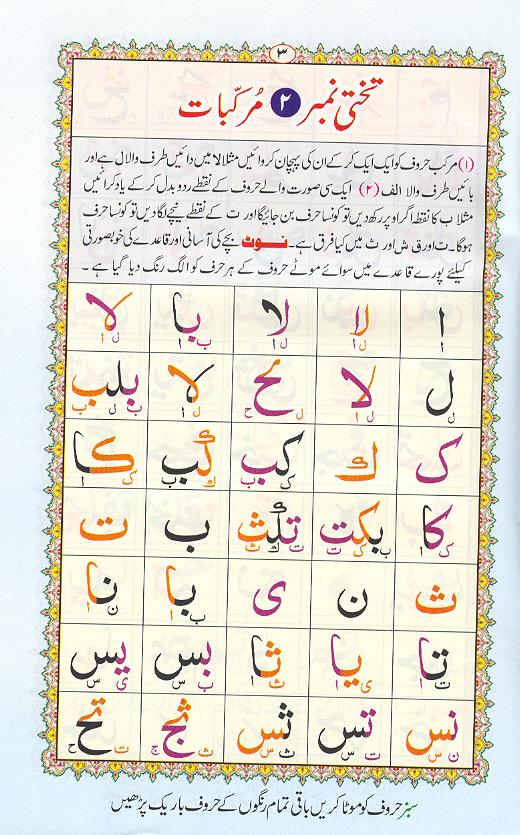 ۳
تختی نمبر ۲ مُرکّبات
(۱) مرکب حروف کو ایک ایک کر کے ان کی پہچان کروائیں مثلا لا میں دائیں طرف والا ل ہے اور
بائیں طرف والا الف (۲) ایک سی صورت والے حروف کے نقطے ردو بدل کر کے یاد کرائیں
مثلا ب کا نقطہ اگر اوپر رکھ دیں تو کونسا حرف بن جائیگا اور ت کے نقطے نیچے لگا دیں تو کونسا حرف
ہوگا۔ ت اور ق ش اور ث میں کیا فرق ہے۔ نوٹ بچے کی آسانی اور قاعدے کی خوبصورتی
کیلئے پورے قاعدے میں سوائے موٹے حروف کے ہر حرف کو الگ رنگ دیا گیا ہے ۔
ا لا لا با لا
ا ل ا ل ا ب ا ل ا
ل لا لح لا بلب
ل ل ا ل ح ل ا ب ل ب
ک ك کب كب کا
ک ب ك ب ک ا
کا بکت تلث ب ت
ک ا ب ک ت ت ل ث
ث ن ی با نا
ب ا ن ا
تا یا ثا بس یس
ت ا ی ا ث ا ب س ی س
نس تس ثس ثج تح
ن س ت س ث س ث ج ت ح
سبز حروف کو موٹا کریں باقی تمام رنگوں کے حروف باریک پڑھیں